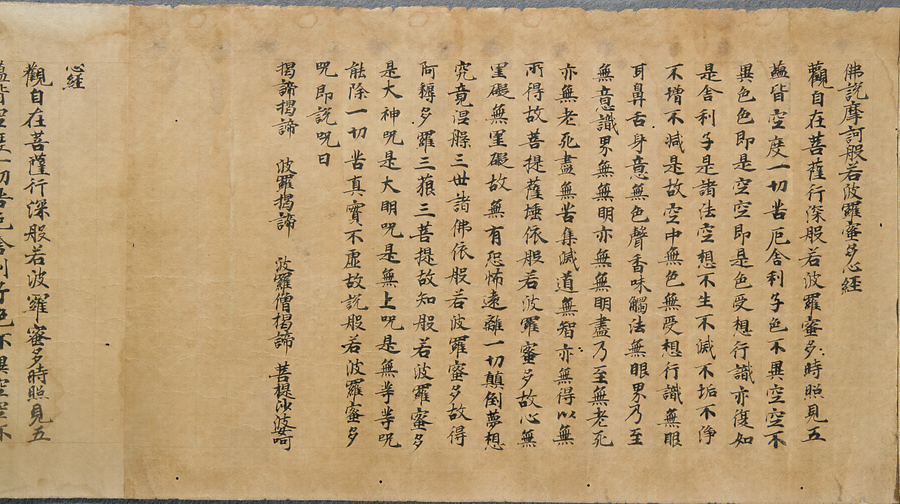 佛說摩訶般若波羅蜜多心經
觀自在菩薩行深般若波羅蜜多時照見五
蘊皆空度一切苦厄舍利子色不異空空不
異色色即是空空即是色受想行識亦復如
是舍利子是諸法空想不生不滅不垢不淨
不增不減是故空中無色無受想行識無眼
耳鼻舌身意無色聲香味觸法無眼界乃至
無意識界無無明亦無無明盡乃至無老死
亦無老死盡無苦集滅道無智亦無得以無
所得故菩提薩埵依般若波羅蜜多故心無
罣礙無罣礙故無有恐怖遠離一切顛倒夢想
究竟涅槃三世諸佛依般若波羅蜜多故得
阿耨多羅三藐三菩提故知般若波羅蜜多
是大神呪是大明呪是無上呪是無等等呪
能除一切苦真實不虛故說般若波羅蜜多
呪即說呪曰
揭諦揭諦 波羅揭諦 波羅僧揭諦 菩提沙婆呵
心經
觀自在菩薩行深般若波羅蜜多時照見五
蘊皆空度一切苦厄舍利子色不異空空不